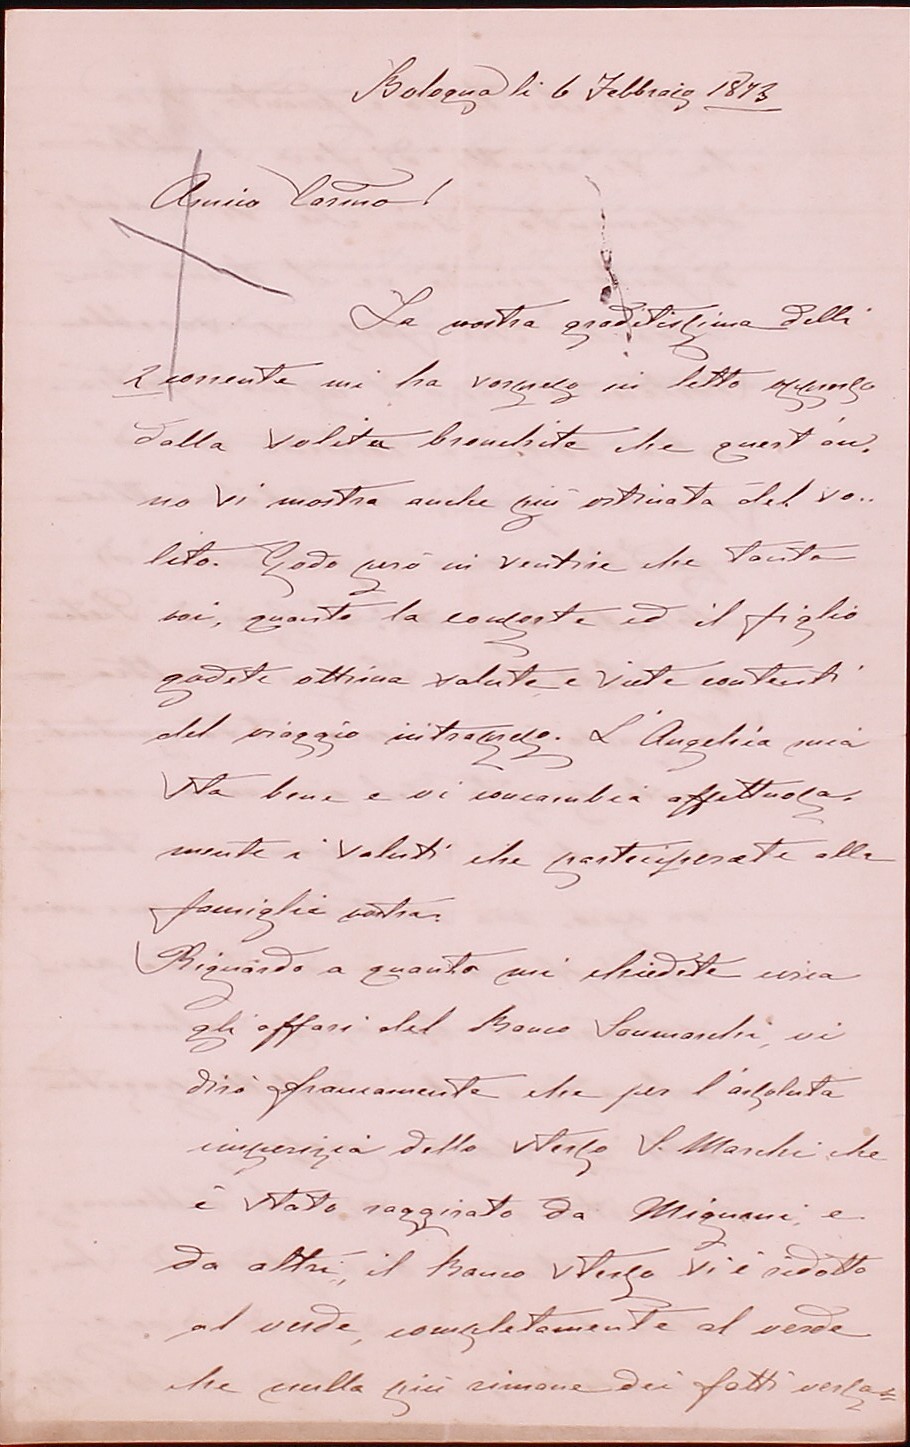 Bologna li 6 Febbraio 1873
Amico Carmo!
La vostra graditissima delli
2 corrente mi ha sorpreso in letto oppresso
dalla solita bronchite che quest'an-
no si mostra anche più ostinata del so-
lito. Godo però in sentire che tanto
voi, quanto la consorte ed il figlio
godete ottima salute e siete contenti
del viaggio intrapreso. L'Angelica mia
sta bene e vi concambia affettuosa-
mente i saluti che parteciperete alla
famiglia vostra.
Riguardo a quanto mi chiedete circa
gli affari del Banco Sanmarchi, vi
dirò francamente che per l'assoluta
imperizia dello stesso S. Marchi che
è stato raggirato da Mignani, e
da altri, il Banco stesso si è ridotto
al verde, completamente al verde
che nulla più rimane dei fatti versa=